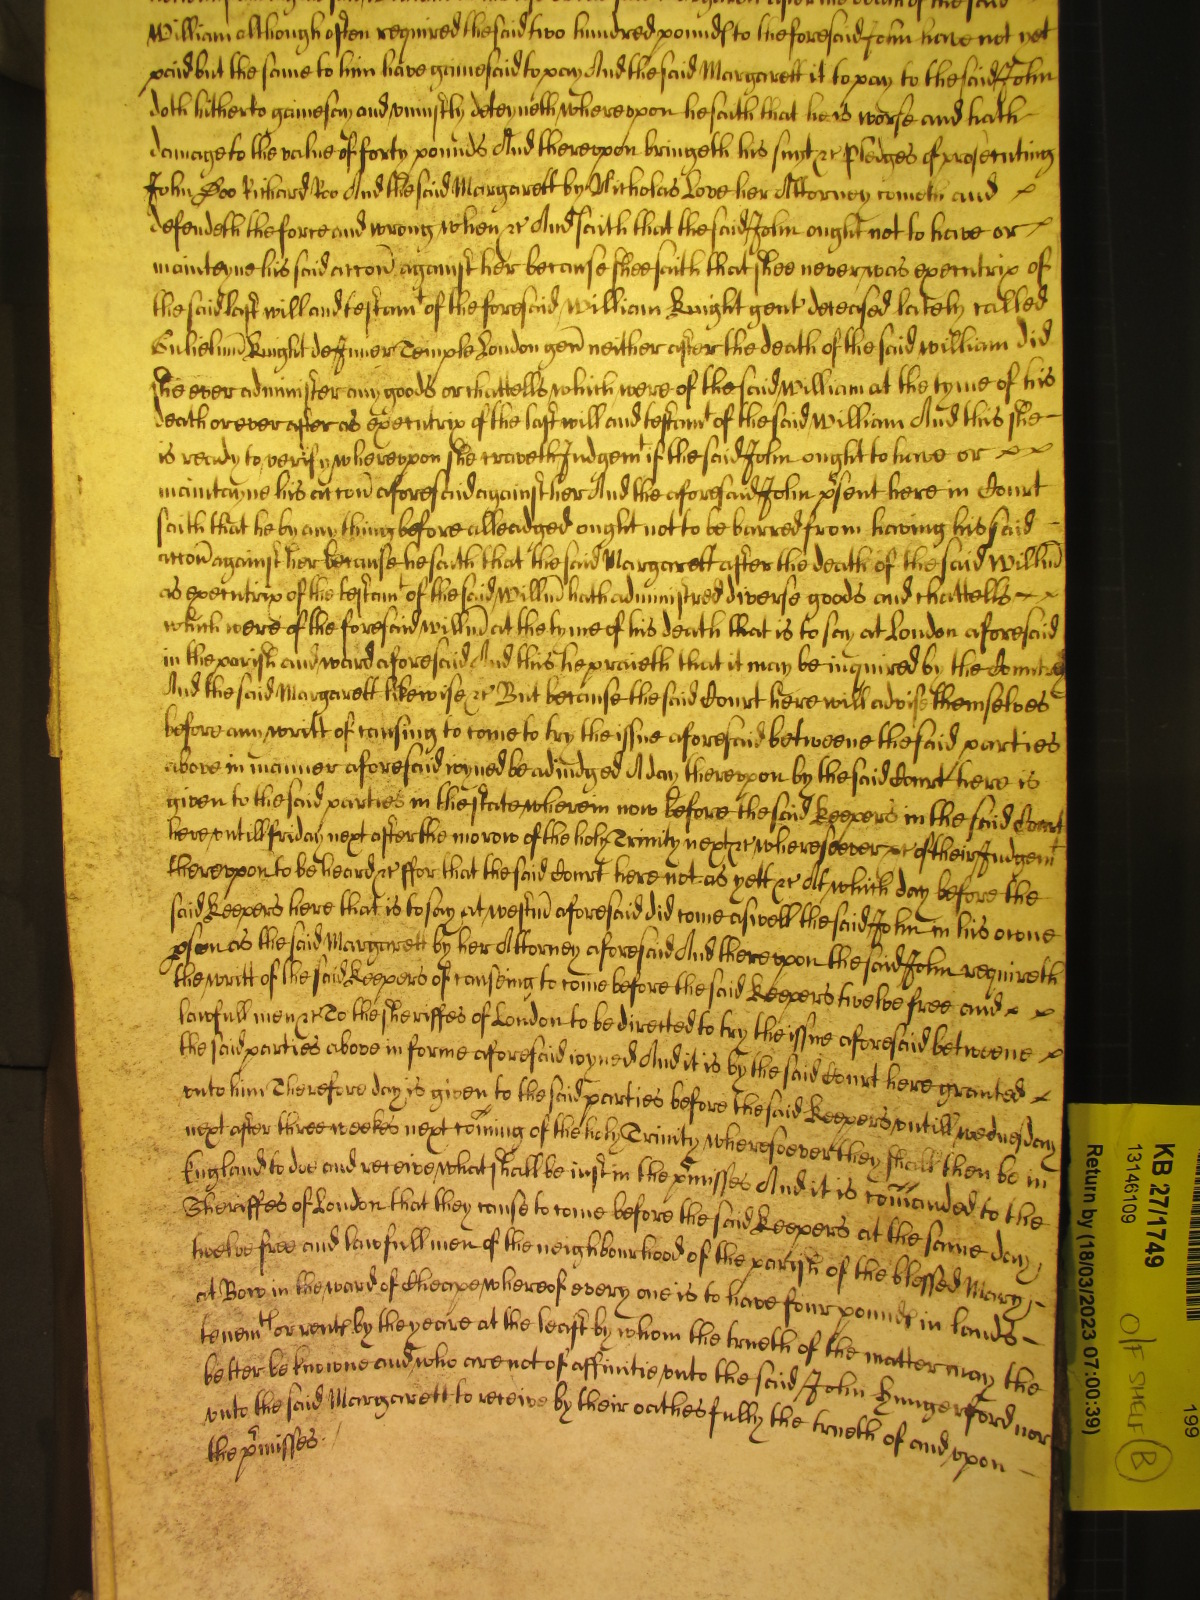 William although often required the said two hundred pounds to the foresaid John have not yet
paid but the same to him have gainesaid to pay And the said Margarett it to pay to the said John
doth hitherto gainesay and uniustly deteyneth whereupon he saith that he is worse and hath
damage to the value of forty pounds And thereupon bringeth his suyt &c Pledges of prosecuting
John Doo Richard Roo And the said Margarett by Nicholas Love her Attorney cometh and
defendeth the force and wrong when &c And saith that the said John ought not to have or
mainteyne his said accon against her because shee saith that shee never was executrix of
the said last will and testamt of the foresaid William Knight gent deceased lately called
Gulielmu Knight de Inner Temple London gen neither after the death of the said William did
she ever administer any goods or chattells which were of the said William at the tyme of his
death or ever after as executrix of the last will and testamt of the said William And this she
is ready to verify whereupon she craveth Judgemt if the said John ought to have or
maintayne his accon aforesaid against her And the aforesaid John psent here in Court
saith that he by any thing before alleadged ought not to be barred from having his said
accon against her because he saith that the said Margarett after the death of the said Willm
as executrix of the testamt of the said Willm hath administred diverse goods and chattells
which were of the foresaid Willm at the tyme of his death that is to say at London aforesaid
in the parish and ward aforesaid And this he praieth that it may be inquired by the Countrey
And the said Margarett likewise &c But because the said Court here will advise themselves
before any writt of causing to come to try the issue aforesaid betweene the said parties
above in manner aforesaid ioyned be adiudged A day thereupon by the said Court here is
given to the said parties in the state wherein now before the said Keepers in the said Court
here untill friday next after the morow of the holy Trinity next &c wheresoever &c of their Judgemt
thereupon to be heard &c ffor that the said Court here not as yett &c At which day before the
said Keepers here that is to say at Westm aforesaid did come aswell the said John in his owne
pson as the said Margarett by her Attorney aforesaid And thereupon the said John requireth
the writt of the said Keepers of causeing to come before the said Keepers twelve free and
lawfull men &c To the sheriffes of London to be directed to try the issue aforesaid betweene
the said parties above in forme aforesaid ioyned And it is by the said Court here granted
unto him Therefore day is given to the said parties before the said Keepers untill wednesday
next after three weekes next coming of the holy Trinity wheresoever they shall then be in
England to doe and receive what shall be iust in the pmisses And it is comanded to the
Sheriffes of London that they cause to come before the said Keepers at the same day
twelve free and lawfull men of the neighbourhood of the parish of the blessed Mary
at Bow in the ward of Cheape whereof every one is to have four pounds in lands
tenemts or rents by the yeare at the least by whom the trueth of the matter may the
better be knowne and who are not of affinitie unto the said John Hungerford nor
unto the said Margarett to receive by their oathes fully the trueth of and upon
the pmisses
KB 27/1749
13146109
Return by (18/03/2023 07:00:39)
199
O/F SHELF B